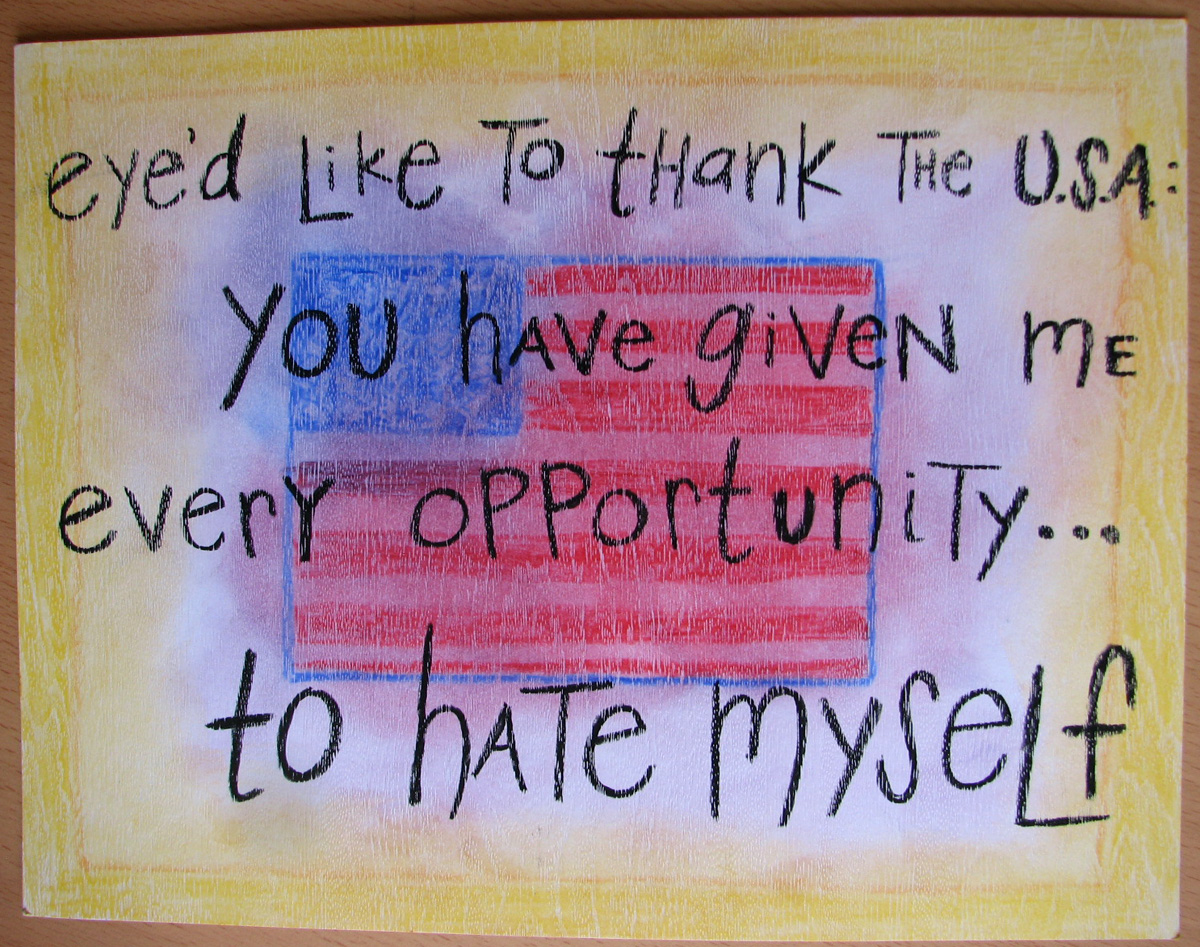 eye'd Like To tHank THe U.S.A:
YOU hAVe giVeN mE
everY oPPortuniTy...
to hATe myseLf